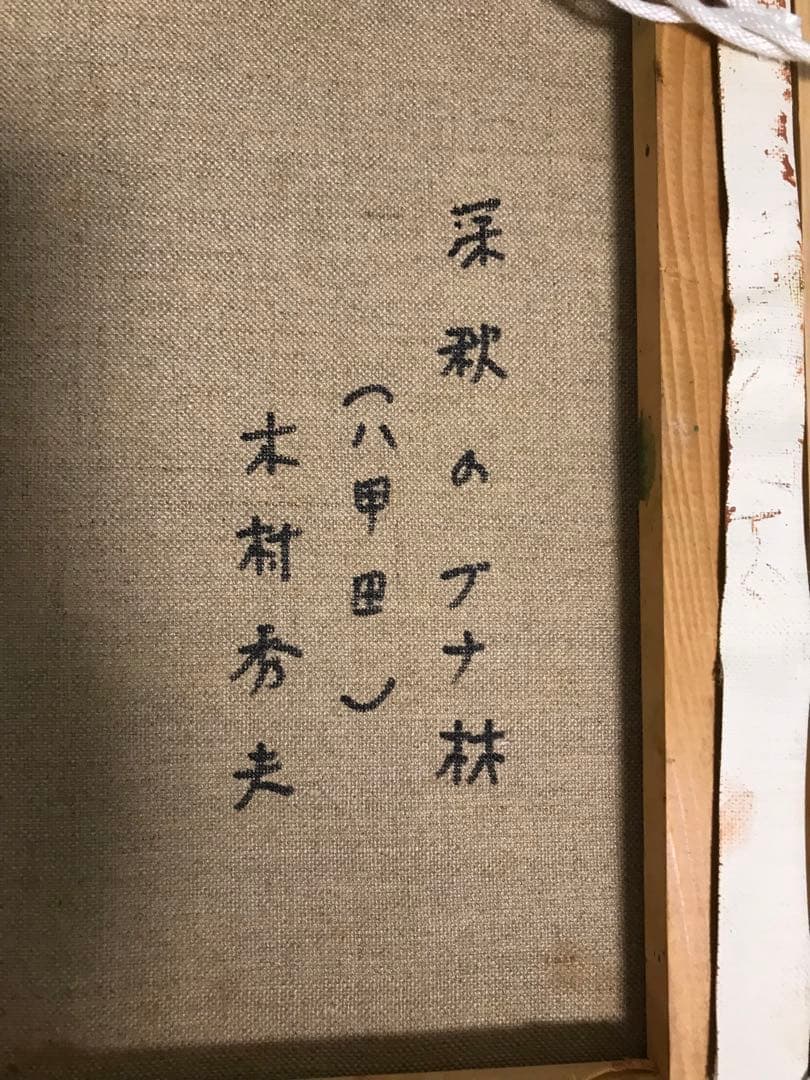 深秋のブナ林
(八甲田)
木村秀夫